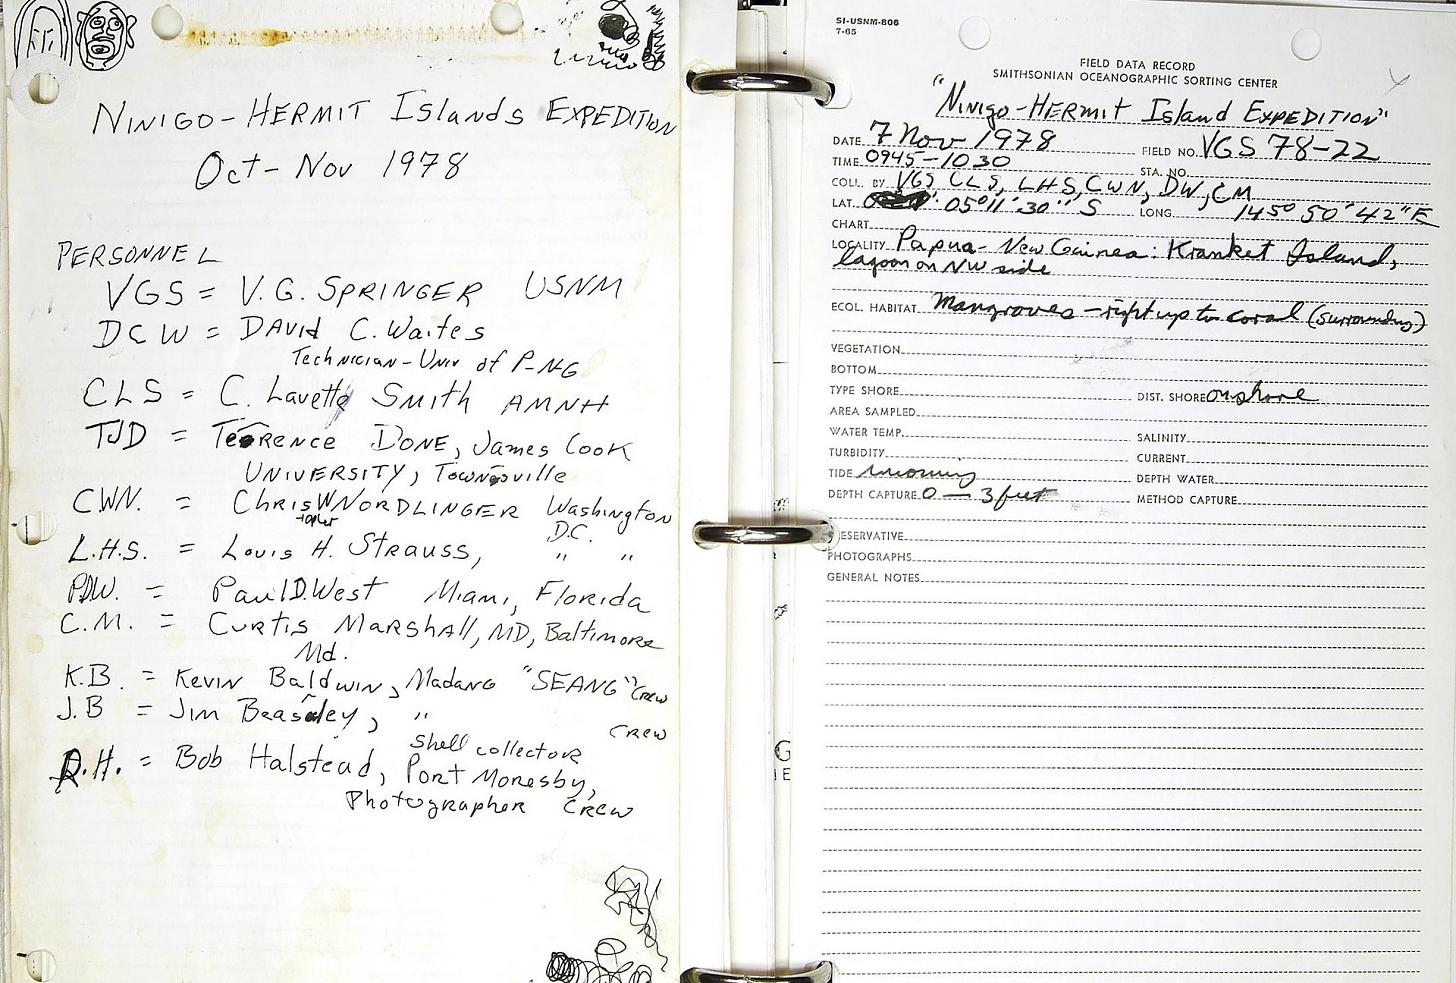 NINIGO-HERMIT Islands EXPEDITION
Oct-Nov 1978
PERSONNEL
VGS = V.G. SPRINGER USNM
DCW = DAVID C. Waites
Technician-Univ of P-NG
CLS = C. Lavett Smith AMNH
TJD = Terrence DONE, James Cook
UNIVERSITY, Townsville
CWN. = Chris W NORDLINGER Washington
D.C.
L.H.S. = Louis H. Strauss, " "
PDW. = Paul D. West Miami, Florida
C.M. = Curtis Marshall, MD, Baltimore
Md.
K.B. = Kevin Baldwin, Madang "SEANG" Crew
J.B = Jim Beasley, " Crew
Shell collector
R.H. = Bob Halstead, Port Moresby,
Photographer Crew
SI-USNM-806
7-65
FIELD DATA RECORD
SMITHSONIAN OCEANOGRAPHIC SORTING CENTER
"Ninigo-Hermit Island EXPEDITION"
DATE 7 Nov 1978 FIELD NO. VGS 78-22
TIME 0945-1030 STA. NO.
COLL. BY VGS CLS, LHS, CWN, DW, CM
LAT. 05°11'30" S LONG. 145° 50' 42" E
CHART
LOCALITY Papua-New Guinea: Kranket Island,
lagoon on NW side
ECOL. HABITAT Mangroves - right up to coral (surrounding)
VEGETATION
BOTTOM
TYPE SHORE DIST. SHORE onshore
AREA SAMPLED
WATER TEMP. SALINITY
TURBIDITY CURRENT
TIDE incoming DEPTH WATER
DEPTH CAPTURE 0 - 3 feet METHOD CAPTURE
RESERVATIVE
PHOTOGRAPHS
GENERAL NOTES